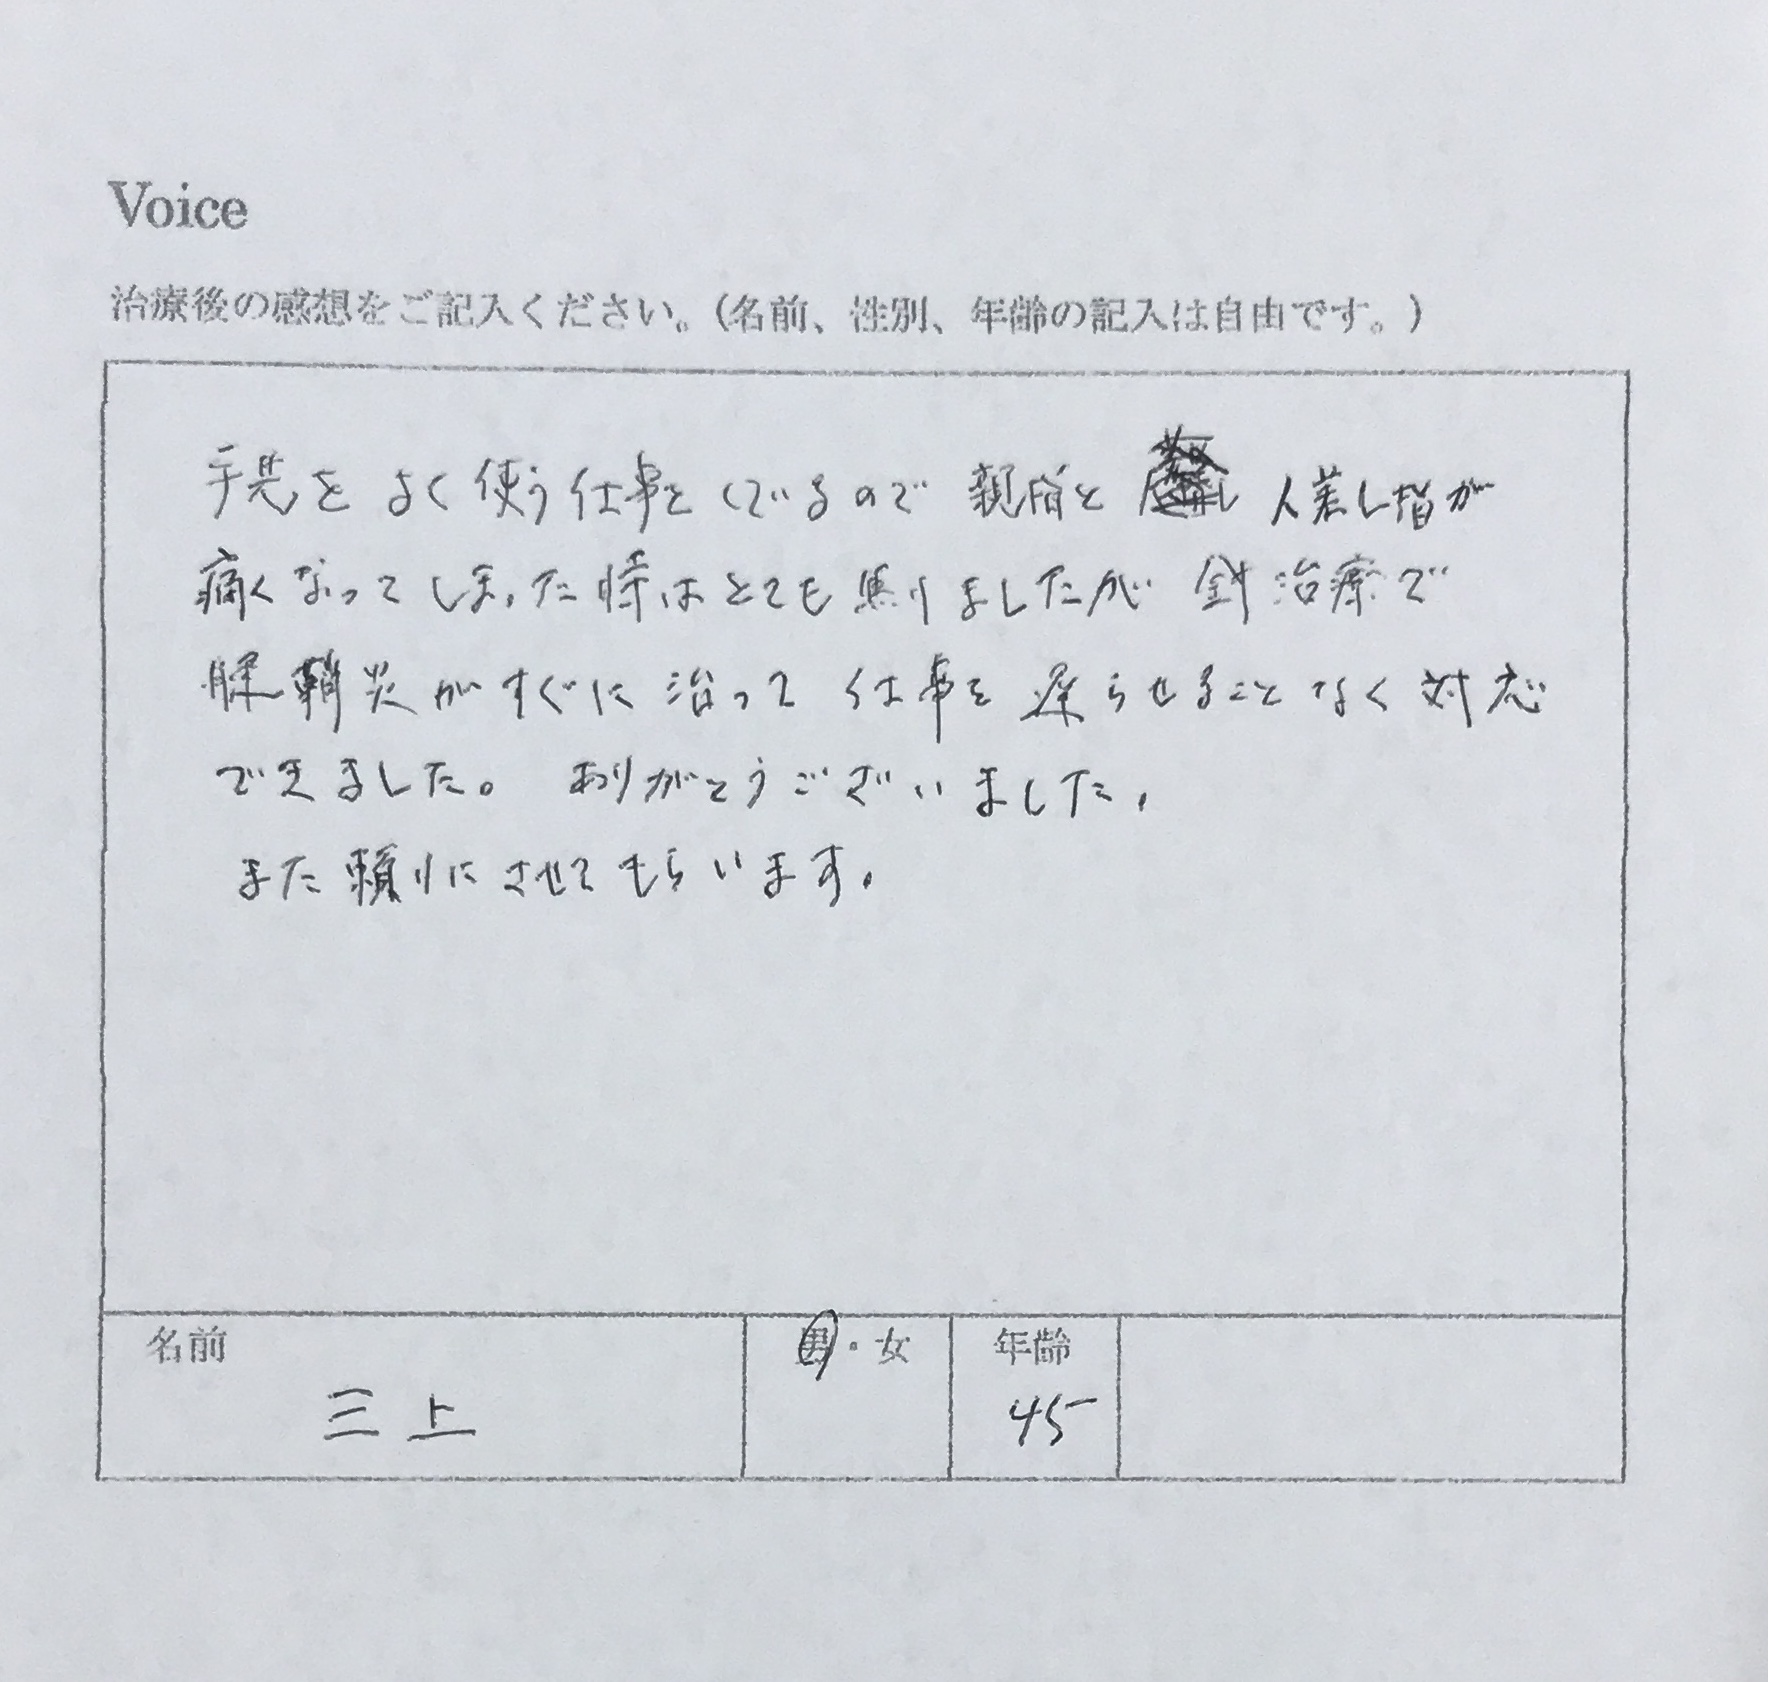 Voice
治療後の感想をご記入ください。（名前、性別、年齢の記入は自由です。）
手先を よく使う仕事をしているので 親指と 人差し指が
痛くなってしまった時はとても焦りましたが 針治療で
腱鞘炎がすぐに治って 仕事を遅らせることなく対応
できました。 ありがとうございました。
また頼りにさせてもらいます。
名前 男・女 年齢
三上 45